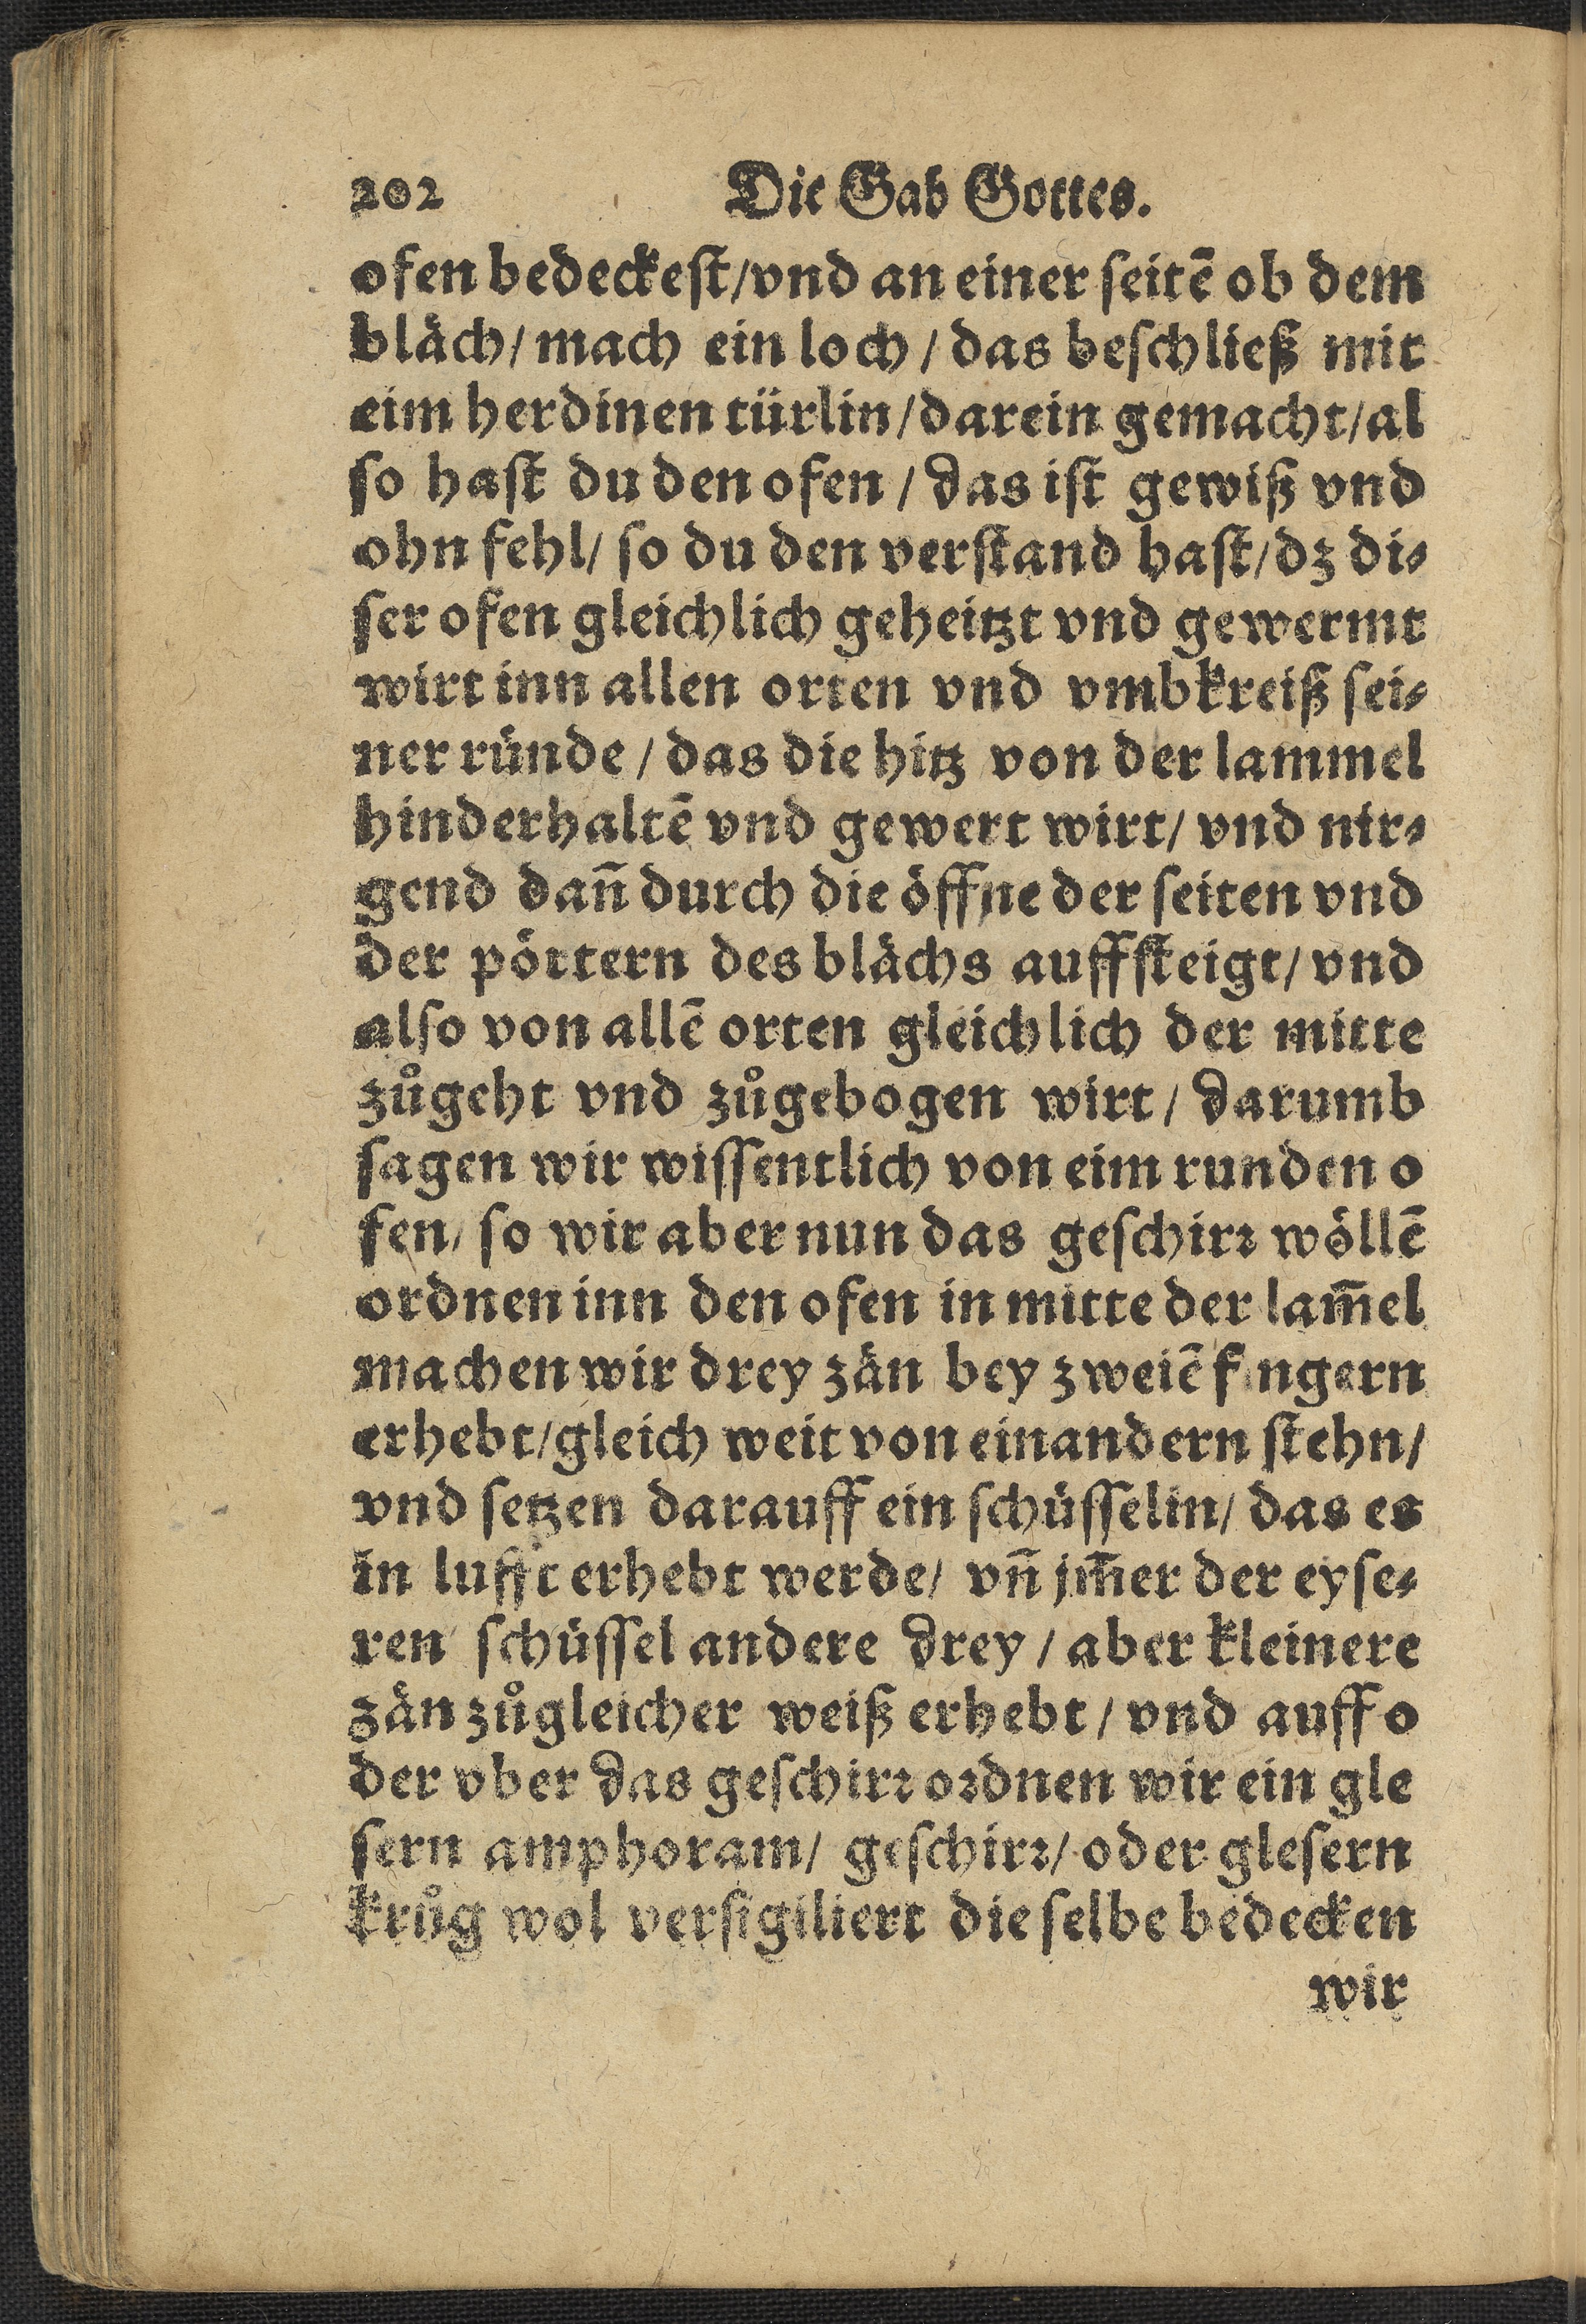 202 Die Gab Gottes.
ofen bedeckeſt/vnd an einer ſeitẽ ob dem
bläch/ mach ein loch / das beſchließ mit
eim herdinen türlin/darein gemacht/al
ſo haſt du den ofen / das iſt gewiß vnd
ohn fehl/ ſo du den verſtand haſt/dz di⸗
ſer ofen gleichlich geheitzt vnd gewermt
wirt inn allen orten vnd vmbkreiß ſei⸗
ner ründe / das die hitz von der lammel
hinderhaltẽ vnd gewert wirt/ vnd nir⸗
gend dañ durch die öffne der ſeiten vnd
der pörtern des blächs auffſteigt/ vnd
alſo von allẽ orten gleichlich der mitte
zůgeht vnd zůgebogen wirt / darumb
ſagen wir wiſſentlich von eim runden o
fen/ ſo wir aber nun das geſchirꝛ wöllẽ
ordnen inn den ofen in mitte der lam̃el
machen wir drey zän bey zweiẽ fingern
erhebt/gleich weit von einandern ſtehn/
vnd ſetzen darauff ein ſchüſſelin/ das es
in lufft erhebt werde/ vñ jm̃er der eyſe⸗
ren ſchüſſel andere drey / aber kleinere
zän zůgleicher weiß erhebt / vnd auff o
der vber das geſchirꝛ oꝛdnen wir ein gle
ſern amphoram/ geſchirꝛ/ oder gleſern
krůg wol verſigiliert die ſelbe bedecken
wir